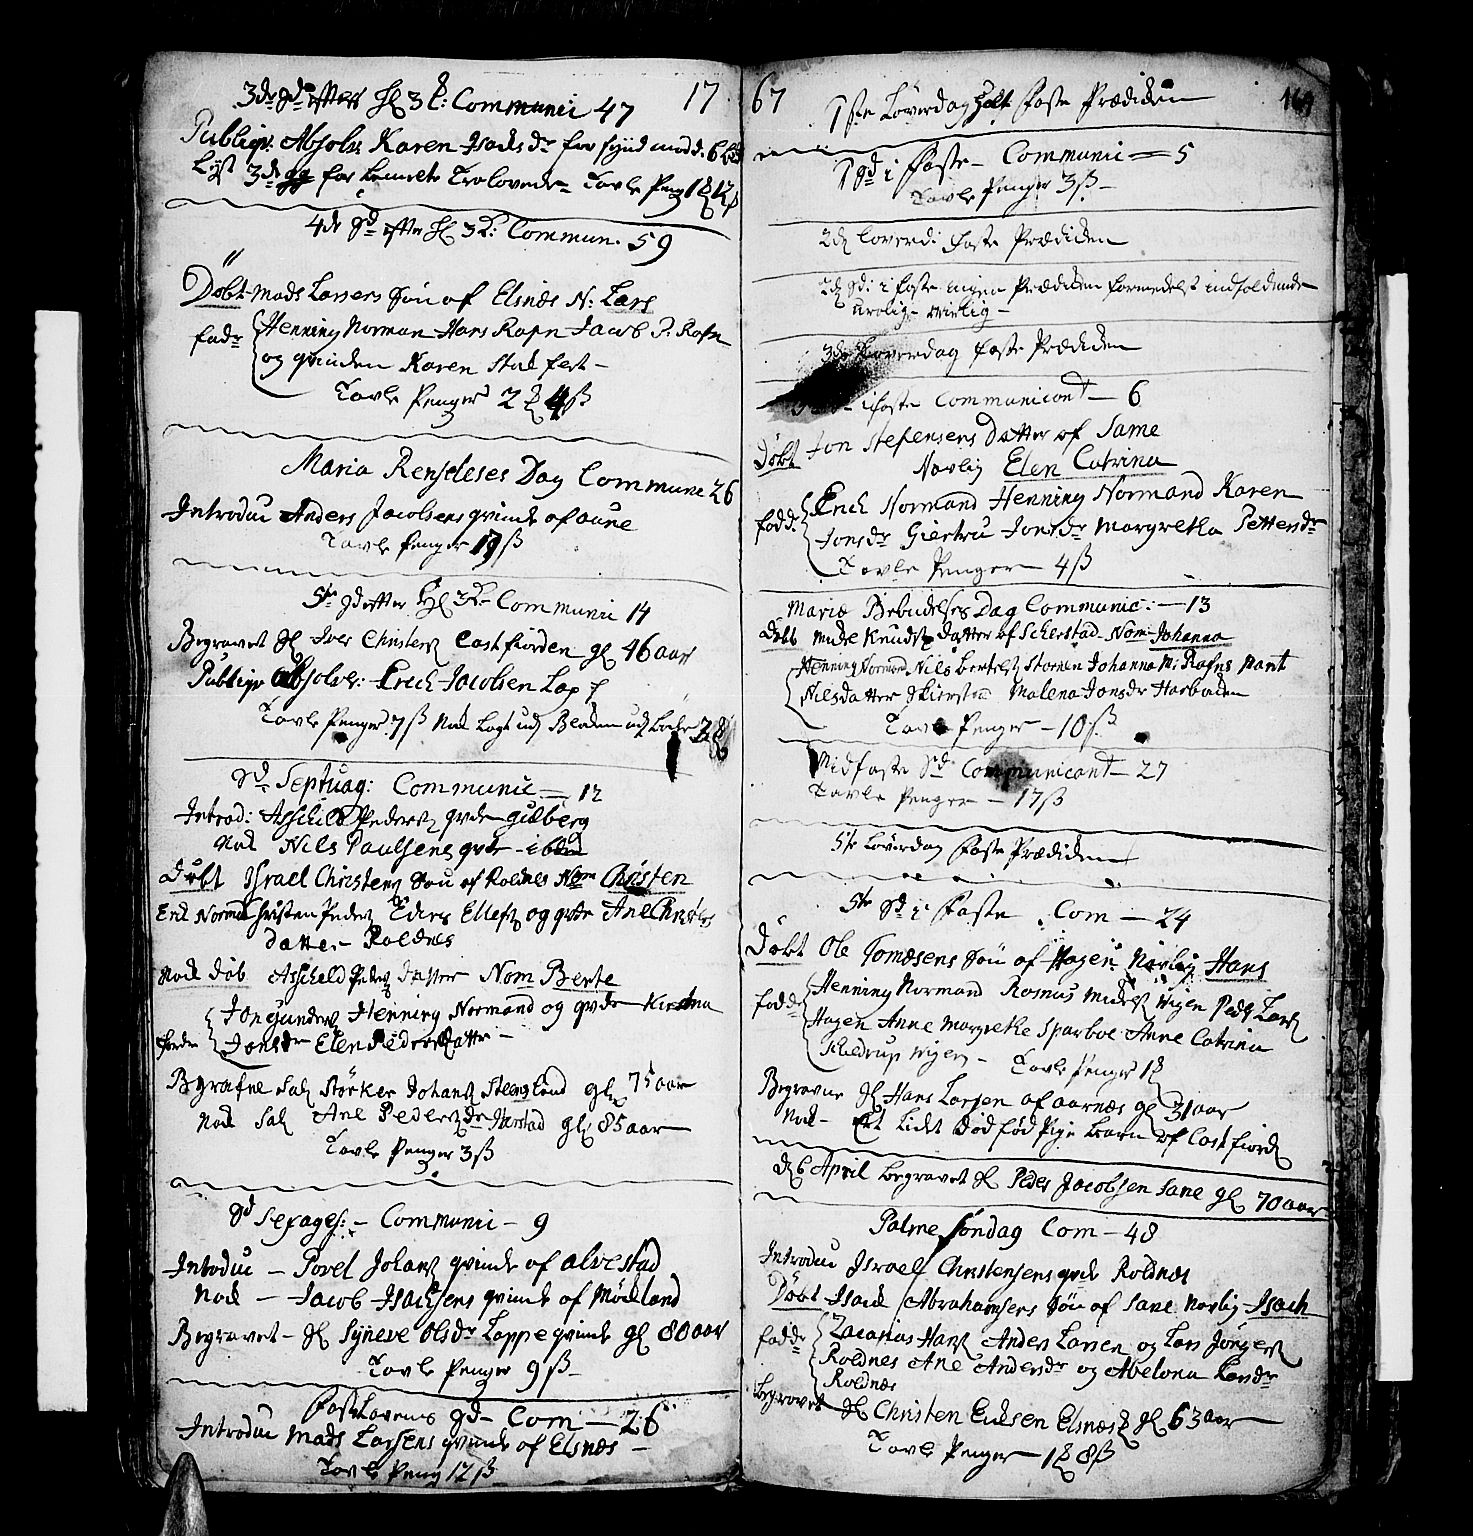 3de Sd: efter H 3 K: Communic 47 17
Public: Absolv: Karen Isachs dr for synd mod d: 6 bud
Lyst 3de gg for bemelte Trolovede Tavle Peng 1 12 ß
4de Sd efter H 3 K: Commun. 59
Døbt Mads Larsens Søn af Elsnæs N: Lars
fadr Henning Norman Hans Rafn Jacob P: Rafn
og qvinden Karen
Tavle Penger 2 4 ß
Maria Renselses Dag Commune 26
Introduc Anders Jacobsens qvinde af aune
Tavle Penger 19 ß
5te Sd efter H 3 K Communic 14
Begravet Sl Iver Christens Castfiorden gl 46 aar
Public Absolv: Erich Jacobsen Lap
Tavle Penger 7 ß Nok Lagt udj
Sd Septuag: Communic: 12
Introd: Asschild Pederss qvde Gulberg
Nok Nils Paulsens qvde
Døbt Israel Christens Søn af Roldnes Nom Christen
Erik Normand Christen Peders Eders Ellefs og qvde Ane Christens
datter Roldnes
Nok døb Asscheld Peders datter Nom Berte
fadre Jon Gunders Henning Normand og qvde Kirstina
Jonsdr Elen Peders datter
Begrafne Sal Störker Johans Steensland gl 75 aar
Nok Sal Ane Peders dr Harstad gl 85 aar
Tavle Penger 3 ß
Sd Sexages: Communic - 9
Introduc - Povel Johans qvinde af Alvestad
Nok - Jacob Isachsens qvinde af Møckland
Begravet - Sl Syneve Olsdr Lappe qvinde gl 80 aar
Tavle Penger 9 ß
Fastelavens Sd Com - 26
Introduc Mads Larsens qvinde af Elsnæs -
Tavle Peng 12 ß
67 1ste Løverdag Faste Prædicken 169
1 Sd i Faste - Communic = 5
Tavle Penger 3 ß -
2den Loverd: Faste Prædicken
2den Sd: i Faste ingen Prædicken formedelst indfoldende
urolig Veirlig -
3de Loverdag Faste Prædicken
i Faste Communicant - 6
Døbt Jon Stefensens Datter af Same
Navlig Elen Catrina
fadd. Erich Normand Henning Normand Karen
Jonsdr Giertru Jonsdr Margretha Pettersdr
Tavle Penger 4 ß
Mariæ Bebudelses Dag Communic: - 13
døbt Knuds datter af Scherstad Nom Johanna
Henning Normand Nils Bertels Johanna M: Rafns
Nilsdatter Malena Jonsdr Harboden
Tavle Penger - 10 ß
Midfaste Sd Communicant - 27
Tavle Penger - 17 ß
5te Løverdag Faste Prædicken
5te Sd i Faste Com - 24
Døbt Ole Tomæsens Søn af Hagen Navlig Hans
fadde Henning Normand Rasmus Peder Lars
Hagen Anne Margrethe Sparboe Anne Catrina
Tavle Penger 1
Begravne Sl Hans Larsen af aarnæs gl 31 aar
Nok - Et Lidet Død fød Pige barn af Castfiord
d 6 April begravet Sl Peder Jacobsen Sane gl 70 aar
Palme Søndag Com - 48
Introduc Israel Christensens qvde Roldnæs
Døbt Isack Abrahamsens Søn af Sane Navlig Isach
fadde Zacarias Hans Anders Larsen og Lars Jörgens
Roldnes Ane Andersdr og Abelona
Roldnæs
Begravet Sl Christen Eriksen Elsnæs gl 63 aar
Tavle Penger - 1 8 ß